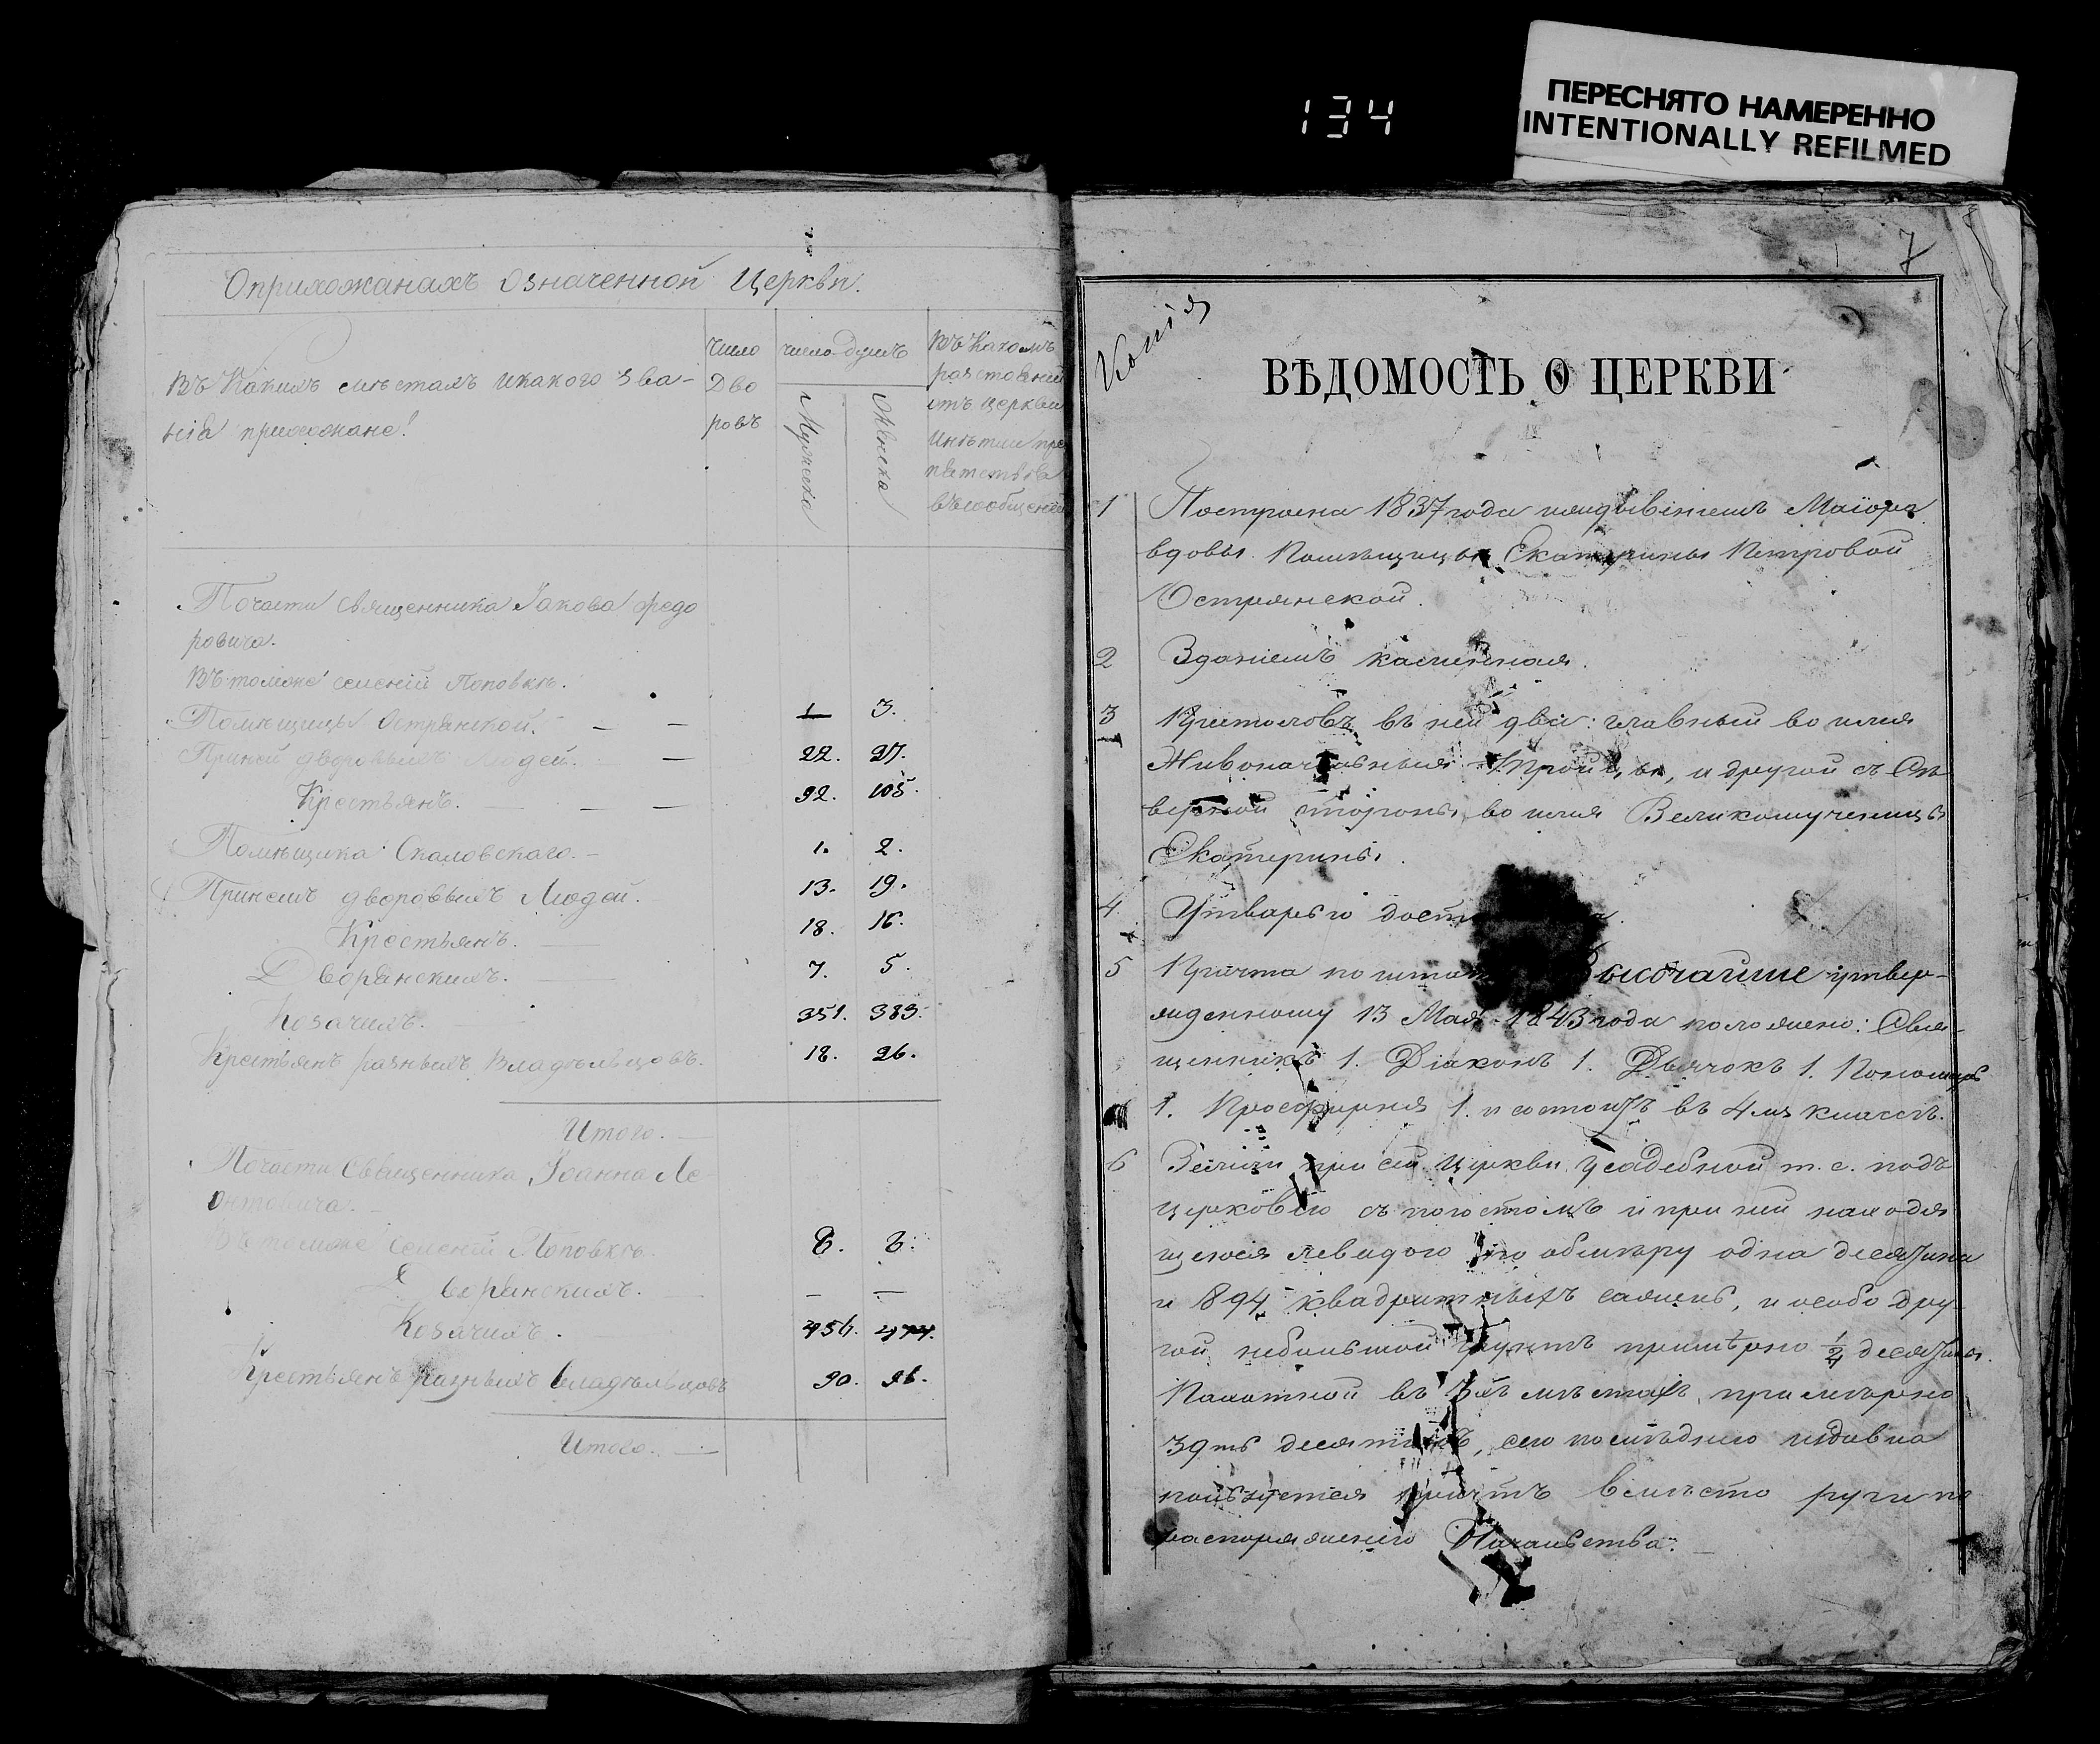 134
ПЕРЕСНЯТО НАМЕРЕННО
INTENTIONALLY REFILMED
О прихожанахъ означенной Церкви.
Въ какихъ мѣстахъ и какого зва-
нія прихожане!
Число
Дво
ровъ
число душъ
Мужеска
Женска
Въ какомъ
разстояніи
отъ церкви
И нѣтъ ли пре
пятствія
въ сообщеніи
По части священника Іакова Федо
ровича.
Въ томъ же селеніи Поповкѣ.
Помѣщицы Остранской. — — 1 3.
При ней дворовыхъ людей. — 22. 27.
Крестьянъ. — — — 92. 105.
Помѣщика Скаловскаго. — 1. 2.
При немъ дворовыхъ Людей. 13. 19.
Крестьянъ. — 18. 16.
Дворянскихъ. — 7. 5.
Козачихъ. — 351. 383.
Крестьянъ разныхъ Владѣльцовъ. 18. 26.
Итого. —
По части Священника Іоанна Ле
онтовича. —
Въ томъ же селеніи Поповкѣ. 8. 8.
Дворянскихъ. — — —
Козачихъ. 456. 474.
Крестьянъ разныхъ владѣльцовъ 90. 96.
Итого. —
7
Копія
ВѢДОМОСТЬ О ЦЕРКВИ
1 Построена 1837 года иждивѣніемъ Маіора
вдовы Помѣщицы Екатерины Петровой
Острянской.
2 Зданіемъ каменная.
3 Престоловъ въ ней два: главный во имя
Живоначальныя Троицы, и другой съ Сѣ
верной стороны во имя Великомученицы
Екатерины.
4 Утварью
5 Причта по Высочайше утвер-
жденному 13 Мая 1843 года положено: Свя-
щенникъ 1. Діаконъ 1. Дьячокъ 1. Пономарь
1. Просфирня 1. и состоитъ въ 4мъ классѣ.
6 Земли при сей Церкви усадебной т. е. подъ
церковью съ погостомъ и при ней находя
щеюся левадою по обмѣру одна десятина
и 894 квадратныхъ сажень, и особо дру
гой небольшой грунтъ примѣрно ¼ десятины.
Пахатной въ 3хъ мѣстахъ, примѣрно
39ть десятинъ, сею послѣднею издавна
пользуется причтъ вмѣсто руги по
распоряженію Начальства. —